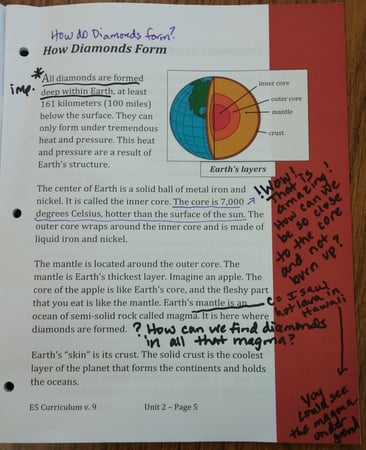 How do Diamonds form?
How Diamonds Form
*
imp.
All diamonds are formed
deep within Earth, at least
161 kilometers (100 miles)
below the surface. They can
only form under tremendous
heat and pressure. This heat
and pressure are a result of
Earth's structure.
inner core
outer core
mantle
crust
Earth's layers
The center of Earth is a solid ball of metal iron and
nickel. It is called the inner core. The core is 7,000
degrees Celsius, hotter than the surface of the sun. The
outer core wraps around the inner core and is made of
liquid iron and nickel.
! Wow!
That is
amazing!
How can we
be so close
to the core
and not
burn up?
The mantle is located around the outer core. The
mantle is Earth's thickest layer. Imagine an apple. The
core of the apple is like Earth's core, and the fleshy part
that you eat is like the mantle. Earth's mantle is an
ocean of semi-solid rock called magma. It is here where
diamonds are formed.
C = I saw
hot lava in
Hawaii
? How can we find diamonds
in all that magma?
Earth's "skin" is its crust. The solid crust is the coolest
layer of the planet that forms the continents and holds
the oceans.
You
could see
the magma
under
ground
E5 Curriculum v. 9
Unit 2 – Page 5